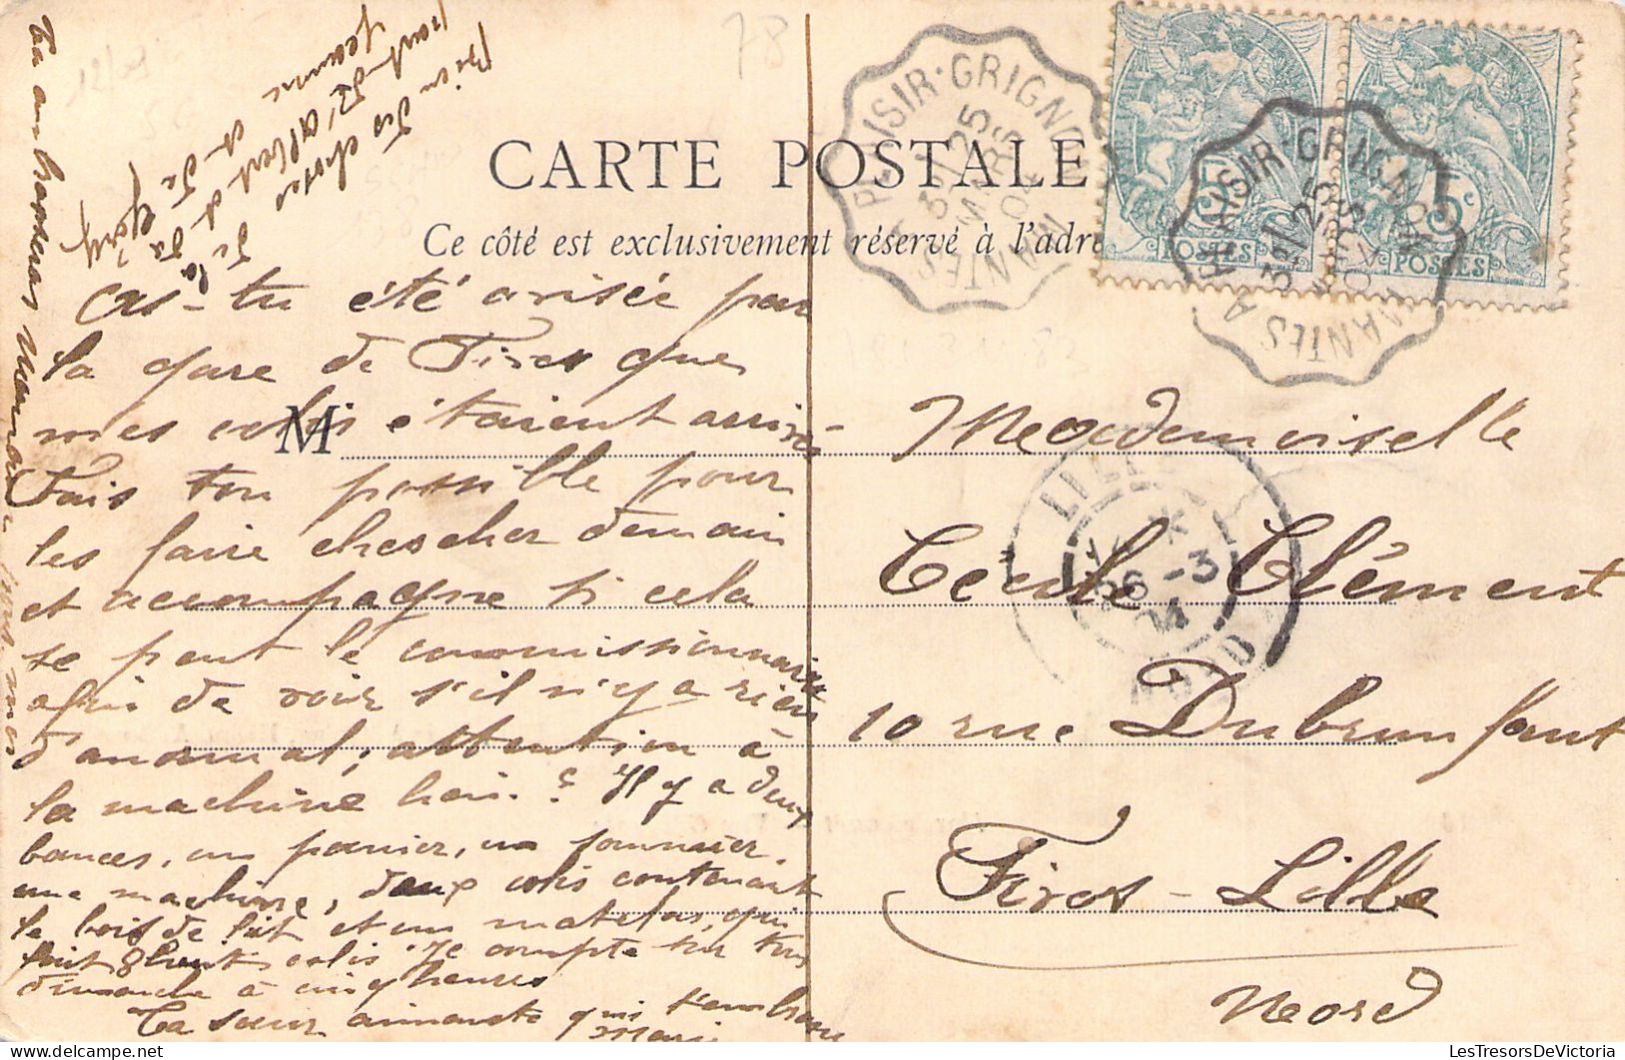 78
CARTE POSTALE
Ce côté est exclusivement réservé à l'adre
PLAISIR-GRIGNON
3E/25
MARS
04
MANTES A
PLAISIR-GRIGNON
3E/25
MARS
04
MANTES A
5c
POSTES
5c
POSTES
bien des choses de la
part d'Albert et de
Jeanne et de
As-tu été avisée par
la gare de Fives que
mes colis étaient arrivés
Fais ton possible pour
les faire chercher demain
et accompagne si cela
se peut le commissionnaire
afin de voir s'il n'y a rien
d'anormal, attention à
la machine hein ? Il y a deux
bances, un panier, un sommier,
une machine, deux colis contenant
le bois de lit et un matelas, qui
font 8 colis. Je compte sur toi
dimanche à cinq heures
Ta sœur aimante qui t'embrasse
Marie
M
Mademoiselle
Cécile Clément
10 rue Dubrunfaut
Fives-Lille
Nord
LILLE
26 -3
04
NORD
LesTresorsDeVictoria